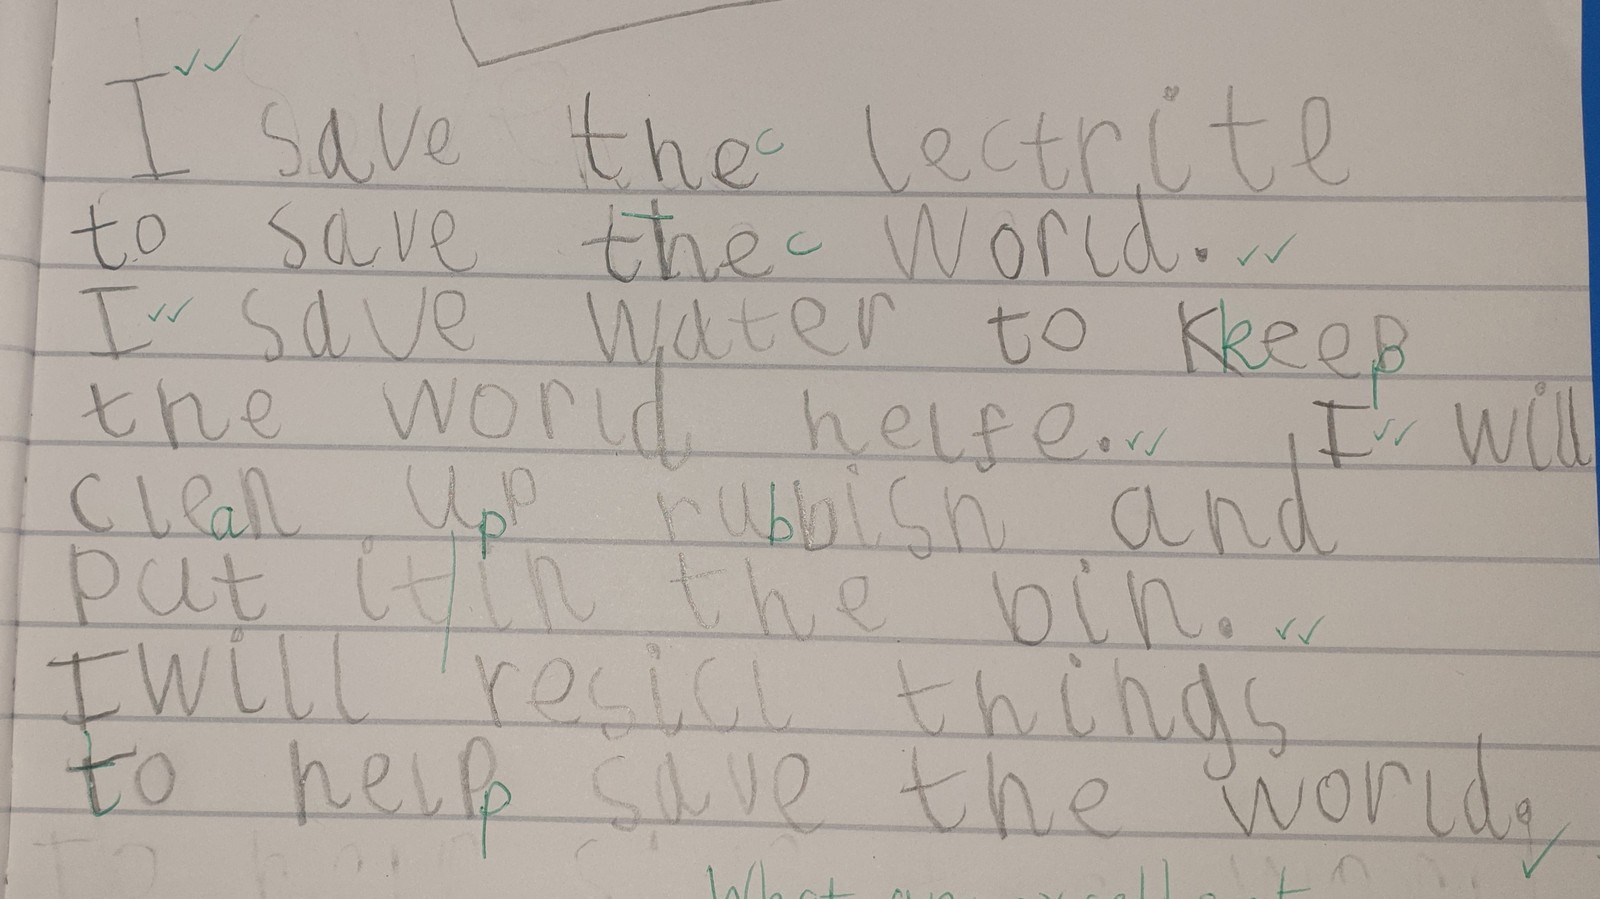 I save the lectrite
to save the world.
I save water to keep
the world helfe. I will
clean up rubbish and
put it in the bin.
I will resicl things
to help save the world.
What an excellent